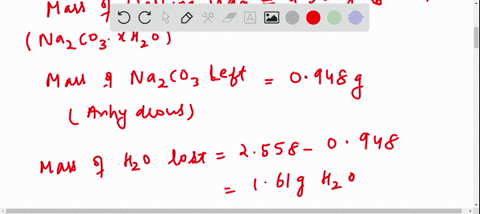 Mass of
(Na2CO3.xH2O)
Mass of Na2CO3 Left = 0.948g
(Anhydrous)
Mass of H2O lost = 2.558 - 0.948
= 1.61g H2O